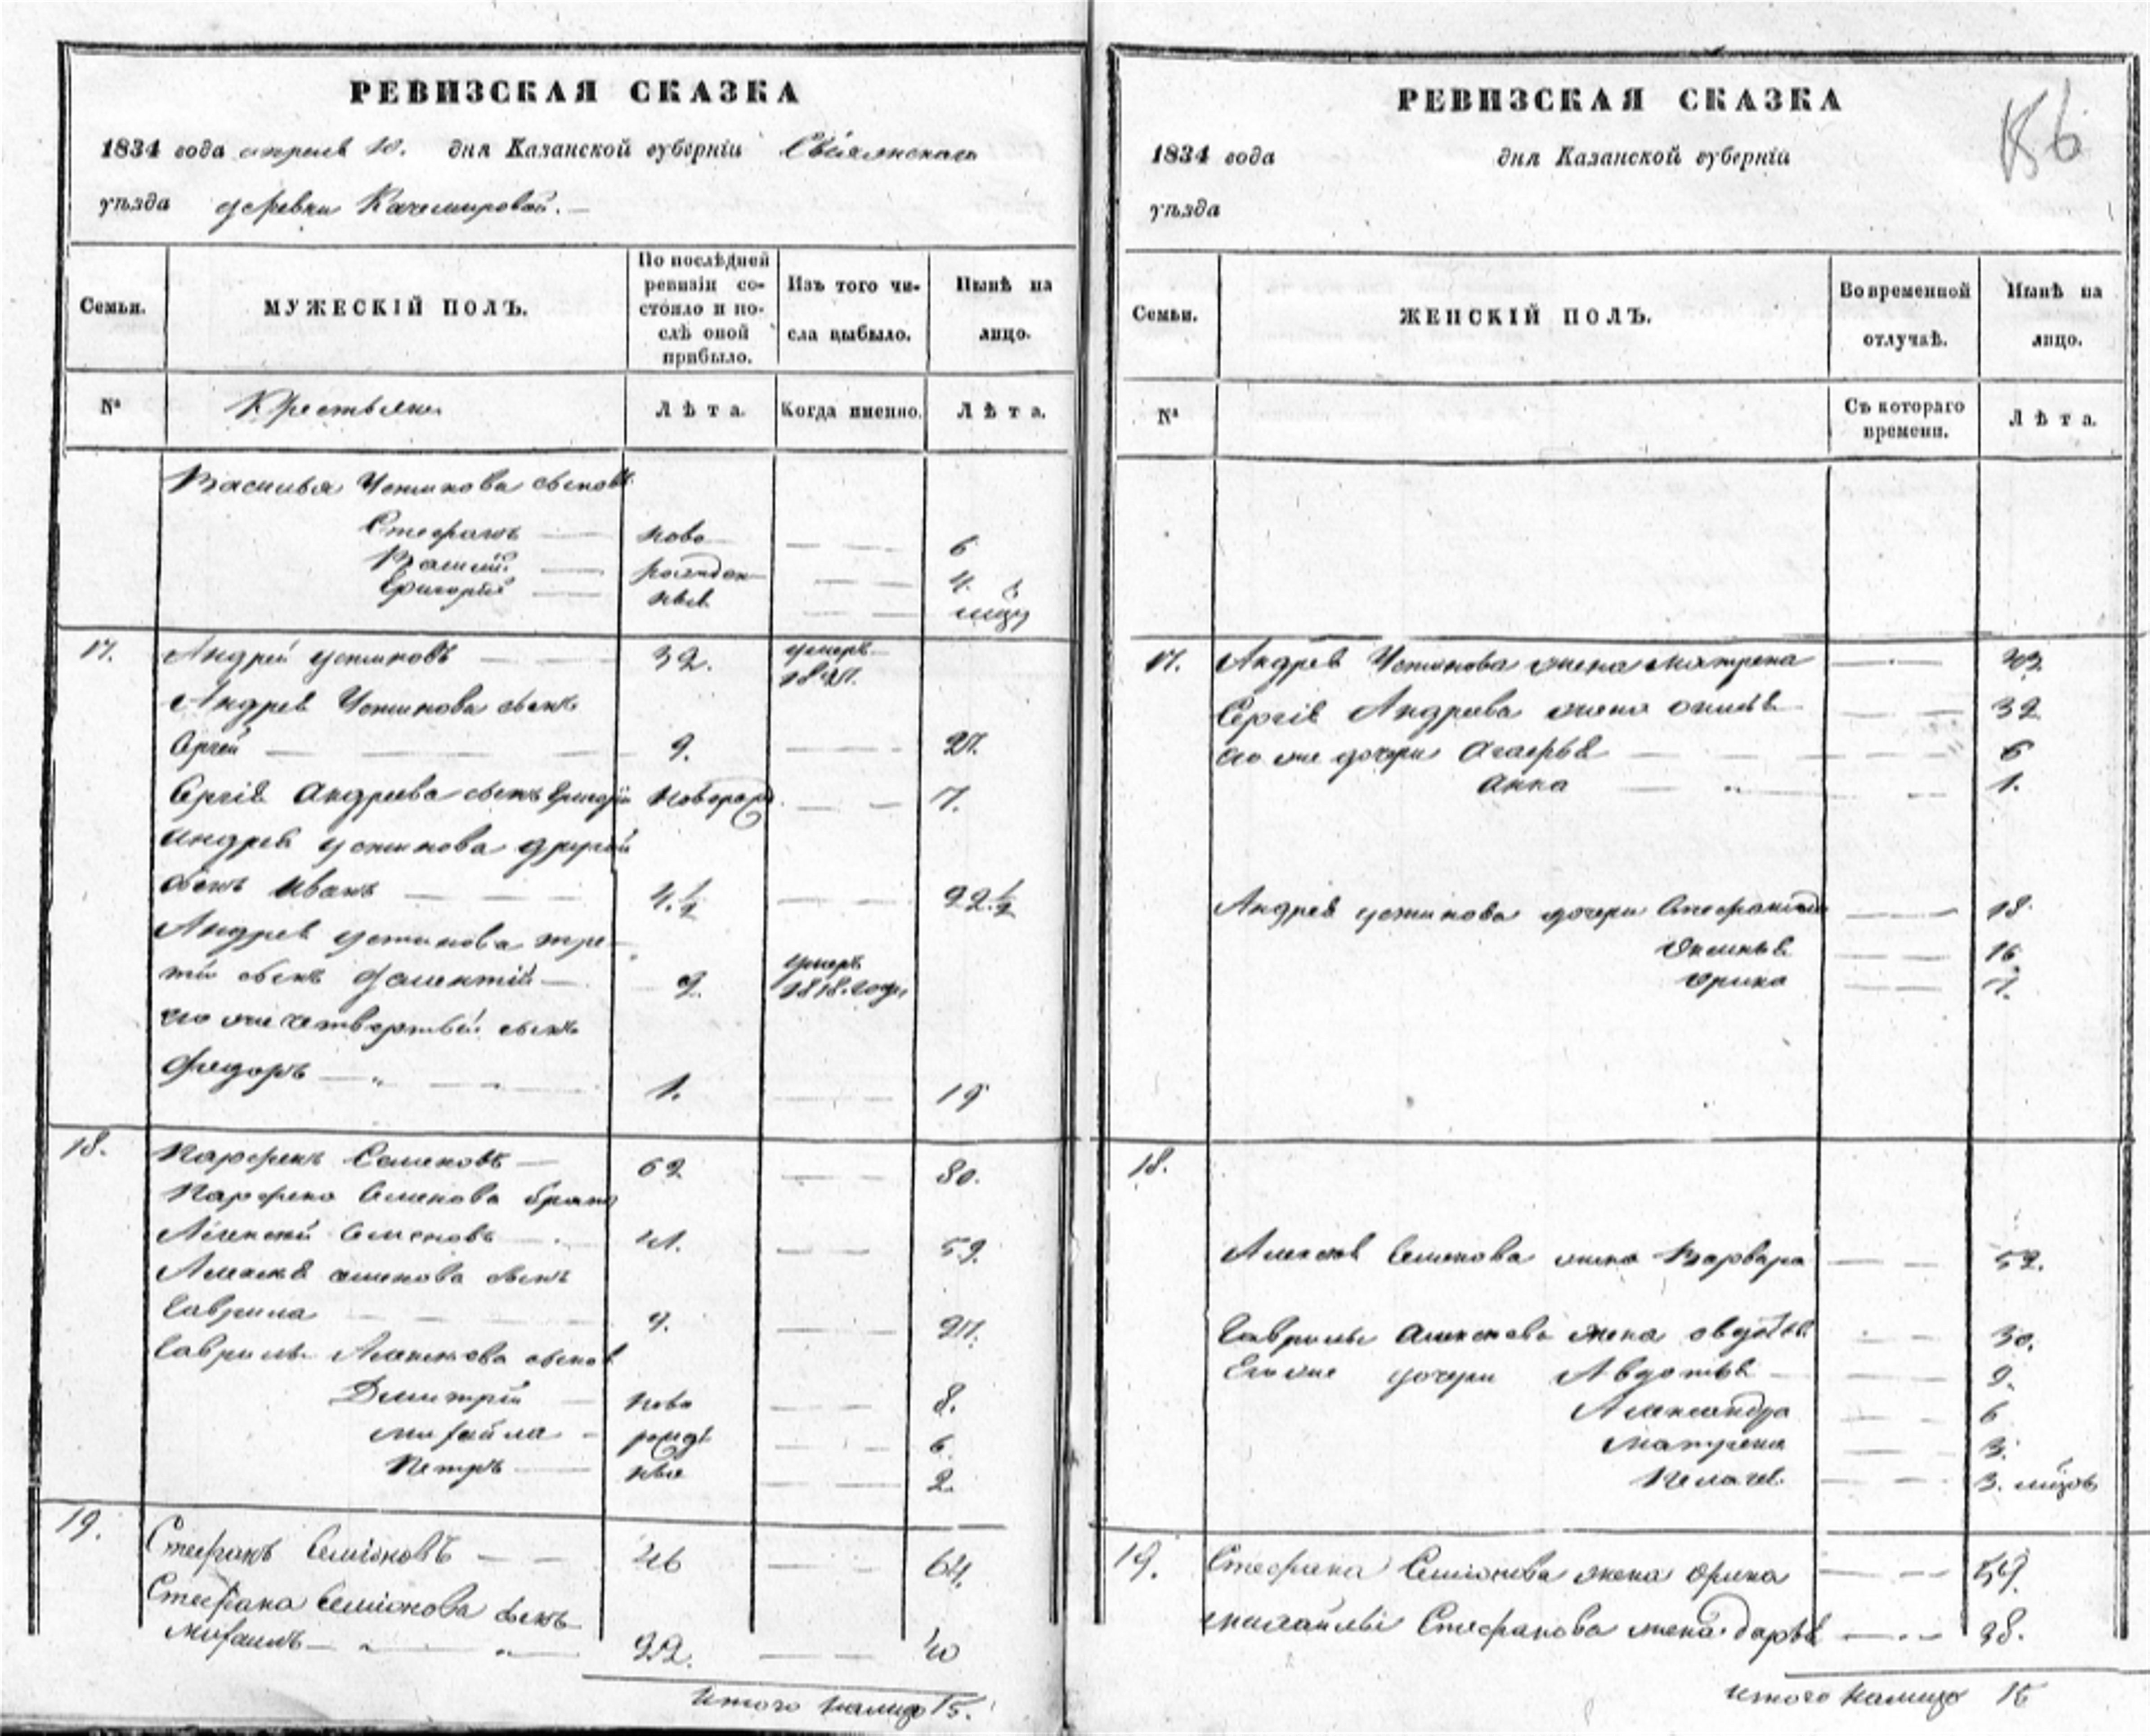 РЕВИЗСКАЯ СКАЗКА
1834 года апреля 10. дня Казанской губерніи Свіяжскаго
уѣзда деревни Качемировой.
Семьи.
МУЖЕСКІЙ ПОЛЪ.
По послѣдней
ревизіи со-
стояло и по-
слѣ оной
прибыло.
Изъ того чи-
сла выбыло.
Нынѣ на
лицо.
№
Крестьяне
Лѣта.
Когда именно.
Лѣта.
Василья Устинова сыновья
Стефанъ ново 6
Василий рожден 4.
Григорий ные
17. Андрей Устиновъ 32. умеръ
Андрея Устинова сынъ
Сергей 9. 27.
Сергія Андреева сынъ Григорій новорож 7.
Андрея Устинова другой
сынъ Иванъ 4.½ 22.½
Андрея Устинова тре-
тій сынъ 2. умеръ
1818. году
его же четвертый сынъ
Федоръ 1. 19
18. Парфенъ Семеновъ 62 80.
Парфена Семенова братъ
Алексей Семеновъ 41. 59.
Алексея Семенова сынъ
Гаврила 9. 27.
Гаврилы Алексеева сыновья
Дмитрій ново 8.
Михайла рожде 6
Петръ ные 2.
19. Стефанъ Семіоновъ 46 64.
Стефана Семіонова сынъ
Михаилъ 22. 40
Итого налицо 15.
РЕВИЗСКАЯ СКАЗКА
1834 года дня Казанской губерніи
уѣзда
Семьи.
ЖЕНСКІЙ ПОЛЪ.
Во временной
отлучкѣ.
Нынѣ на
лицо.
№
Съ котораго
времени.
Лѣта.
17. Андрея Устинова жена Матрена
Сергія Андреева жена 32
его же дочери Агафья 6
Анна 1.
Андрея Устинова дочери Стефанида 18
Аксинья 16
Орина 7.
18.
Алексея Семенова жена Варвара 52.
Гаврилы Алексеева жена Авдотья 30.
Его же дочери Авдотья 9.
Александра 6
Матрена 3.
Пелагея 3. мцов
19. Стефана Семіонова жена Орина 59.
Михайлы Стефанова жена Дарья 38.
Итого налицо 15